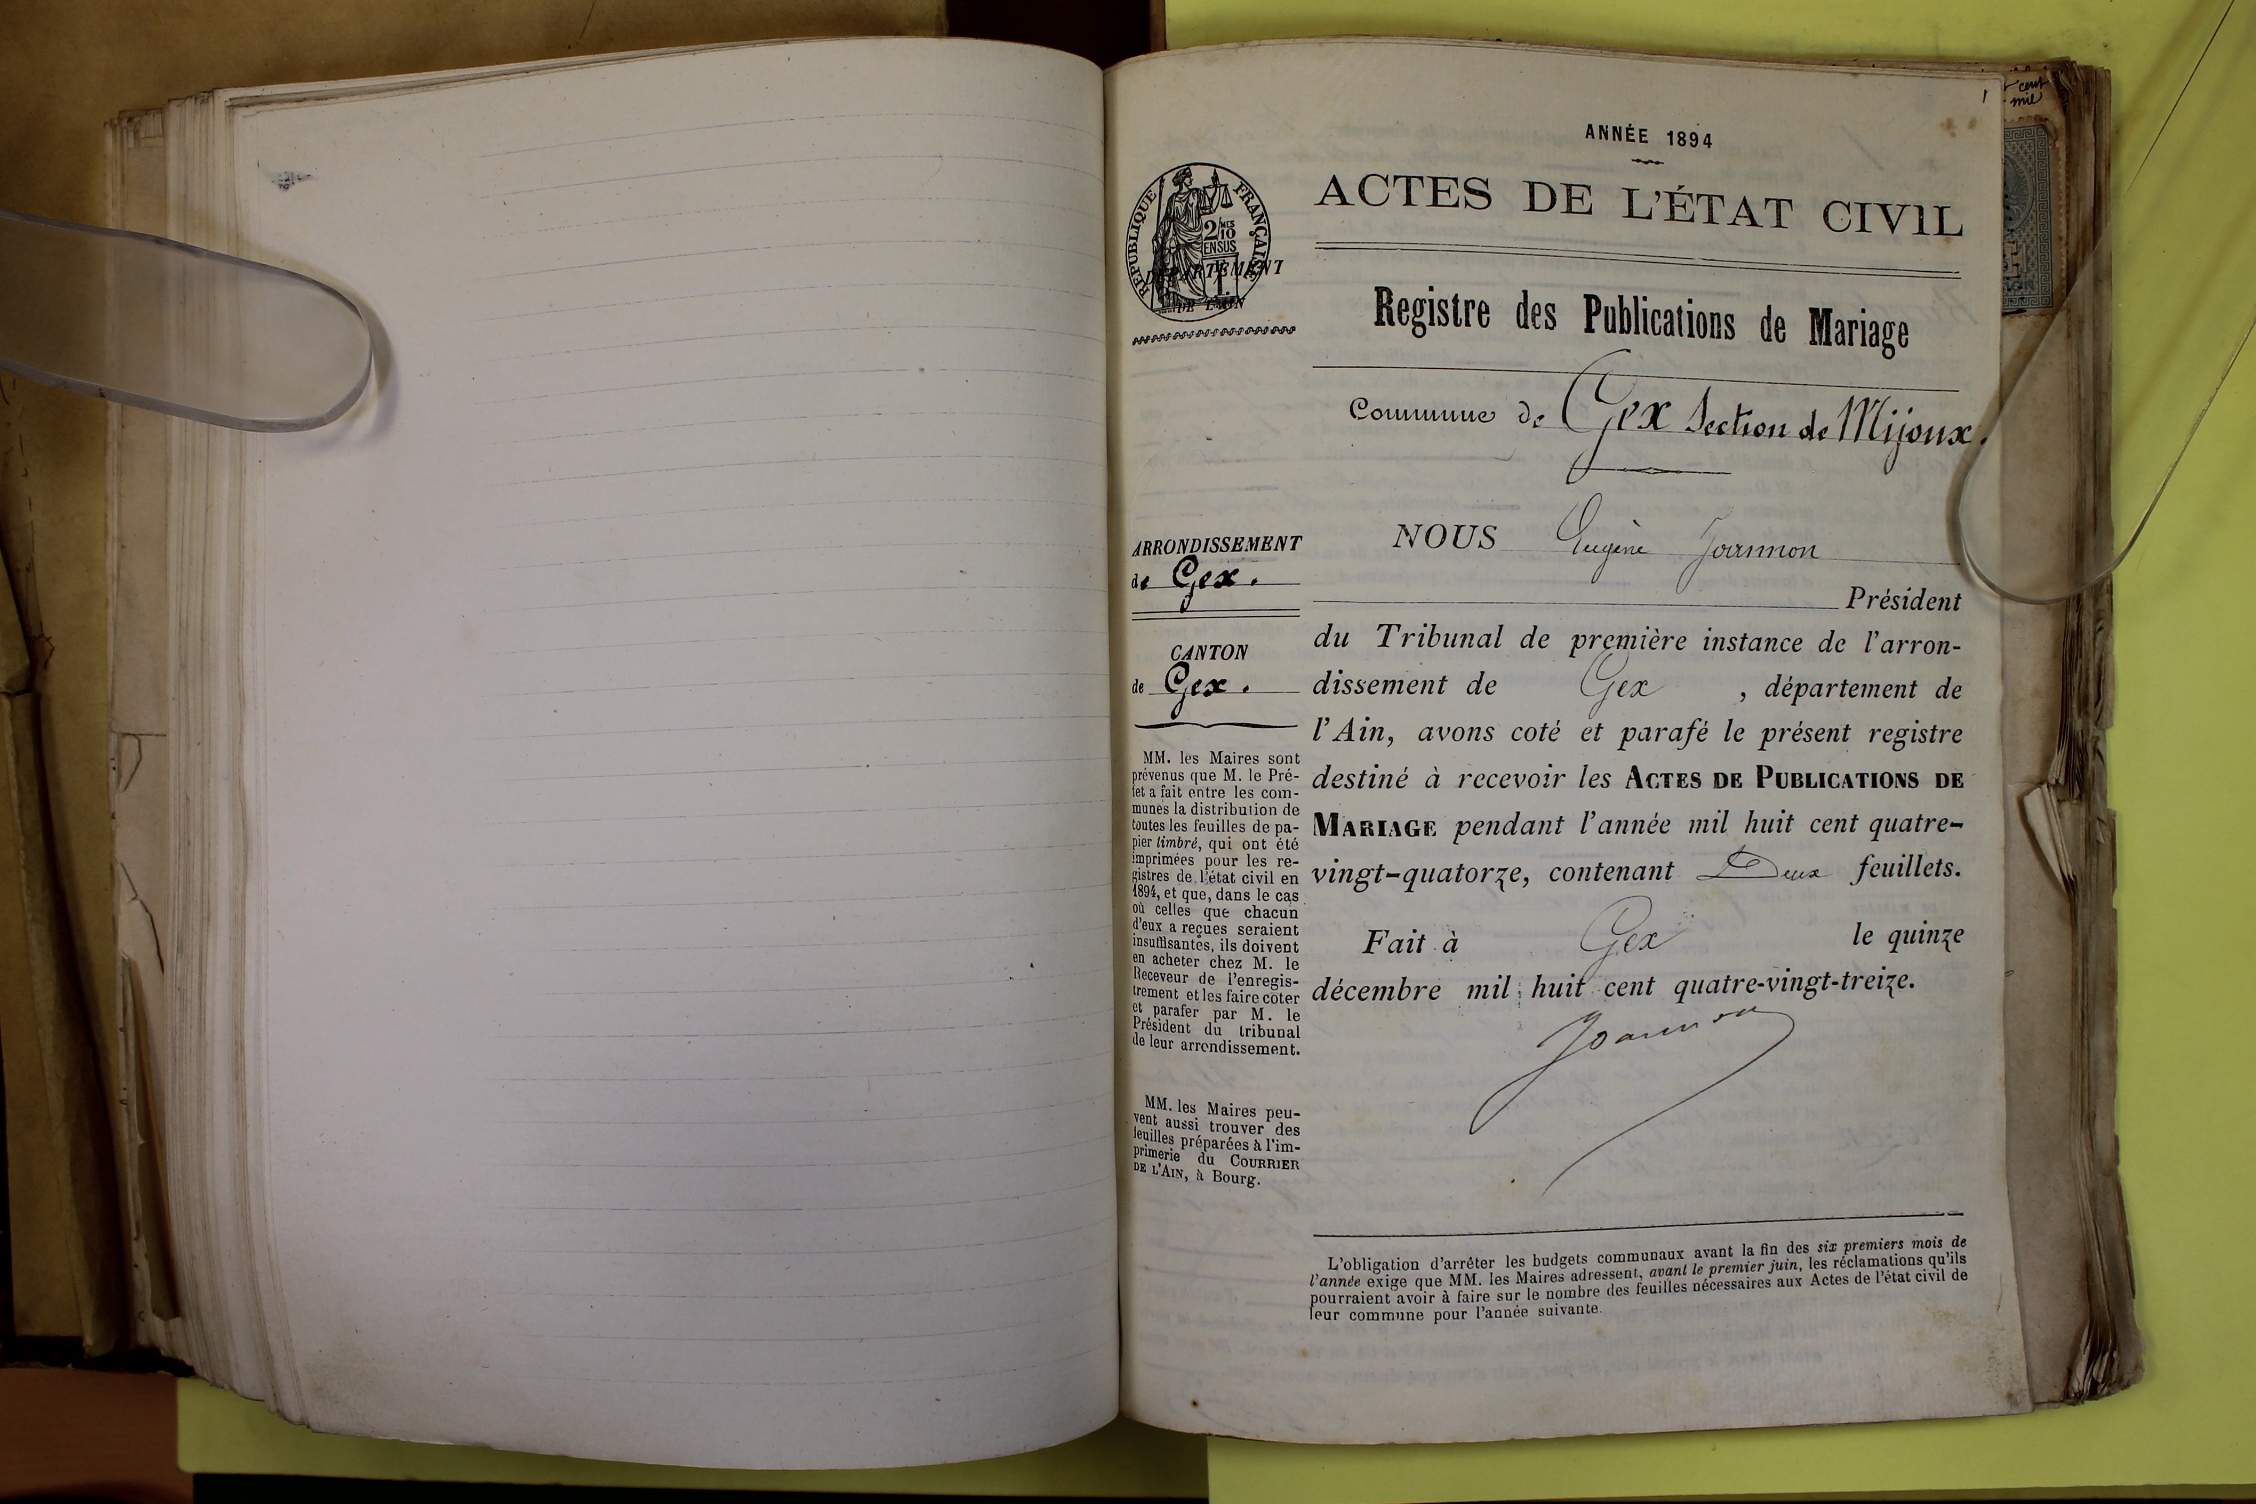 1
cent
mil
ANNÉE 1894
ACTES DE L'ÉTAT CIVIL
RÉPUBLIQUE FRANÇAISE
2/10
MES
EN SUS
DÉPARTEMENT
DE L'AIN
Registre des Publications de Mariage
Commune de Gex Section de Mijoux.
ARRONDISSEMENT
de Gex.
CANTON
de Gex.
MM. les Maires sont
prévenus que M. le Pré-
fet a fait entre les com-
munes la distribution de
toutes les feuilles de pa-
pier timbré, qui ont été
imprimées pour les re-
gistres de l'état civil en
1894, et que, dans le cas
où celles que chacun
d'eux a reçues seraient
insuffisantes, ils doivent
en acheter chez M. le
Receveur de l'enregis-
trement et les faire coter
et parafer par M. le
Président du tribunal
de leur arrondissement.
MM. les Maires peu-
vent aussi trouver des
feuilles préparées à l'im-
primerie du COURRIER
DE L'AIN, à Bourg.
NOUS Eugène Joannon
Président
du Tribunal de première instance de l'arron-
dissement de Gex , département de
l'Ain, avons coté et parafé le présent registre
destiné à recevoir les ACTES DE PUBLICATIONS DE
MARIAGE pendant l'année mil huit cent quatre-
vingt-quatorze, contenant Deux feuillets.
Fait à Gex le quinze
décembre mil huit cent quatre-vingt-treize.
Joannon
L'obligation d'arrêter les budgets communaux avant la fin des six premiers mois de
l'année exige que MM. les Maires adressent, avant le premier juin, les réclamations qu'ils
pourraient avoir à faire sur le nombre des feuilles nécessaires aux Actes de l'état civil de
leur commune pour l'année suivante.